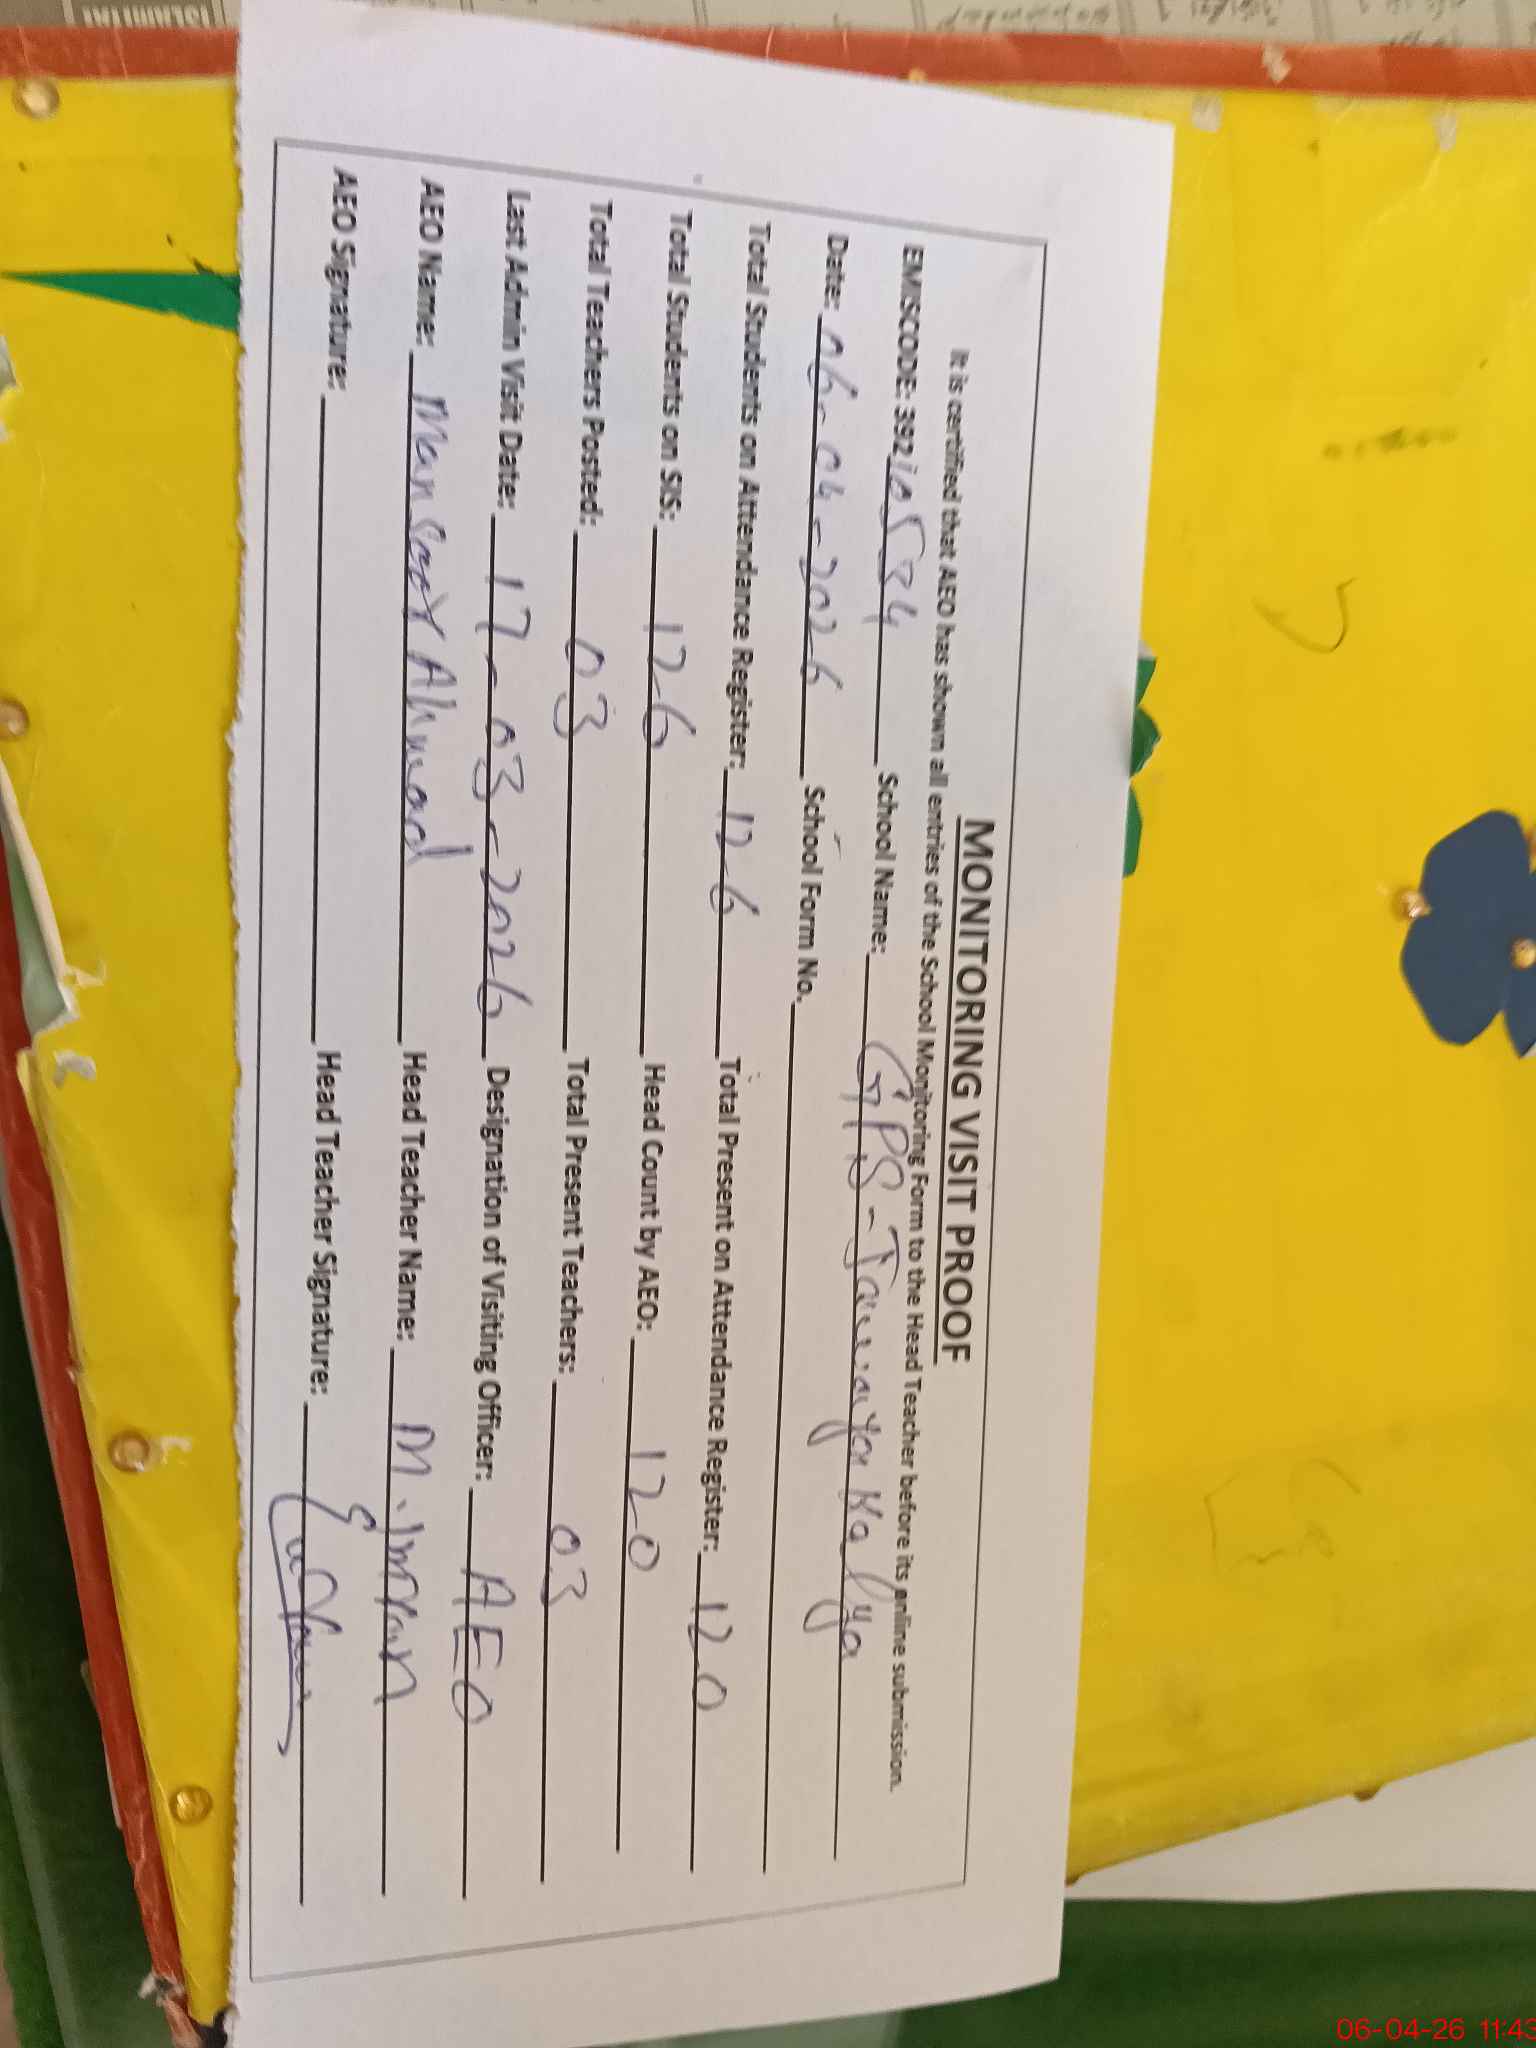 MONITORING VISIT PROOF
It is certified that AEO has shown all entries of the School Monitoring Form to the Head Teacher before its online submission.
EMISCODE: 39210534 School Name: GPS-Tawaya Kalya
Date: 06-04-2026 School Form No.
Total Students on Attendance Register: 126 Total Present on Attendance Register: 120
Total Students on SIS: 126 Head Count by AEO: 120
Total Teachers Posted: 03 Total Present Teachers: 03
Last Admin Visit Date: 17-03-2026 Designation of Visiting Officer: AEO
AEO Name: Mansoor Ahmad Head Teacher Name: M. Imran
AEO Signature: Head Teacher Signature:
06-04-26 11:43